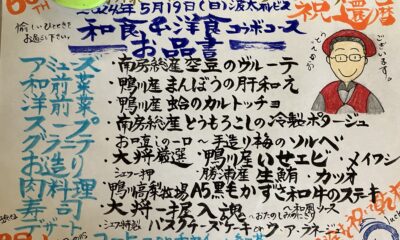 60TH
2024年5月19日(日)波太前ビス
祝還暦
愉しいひとときを
お過ごし下さい。
和食&洋食コラボコース
お品書
ございます。
アミューズ 南房総産空豆のヴルーテ
和前菜・鴨川産まんぼうの肝和え
洋前菜・鴨川産蛤のカルトッチョ
スープ・南房総産とうもろこしの冷製ポタージュ
グラニテ・お口直しの一口~手造り梅のソルベ
お造り・大将厳選 鴨川産いせエビ・メイフシ
シェフ押し 勝浦産生鮪・カツオ
肉料理・鴨川牧場A5黒毛かずさ和牛のステーキ
寿司・大将一握入魂
~おたのしみ
デザート・シェフ特製バスクチーズケーキorクア・ラネージュ
コーヒー